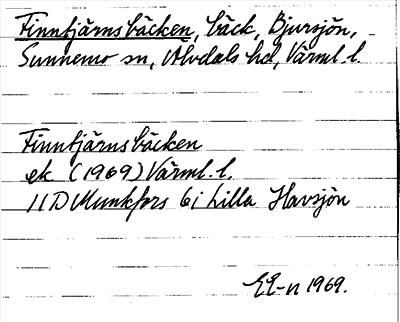 Finntjärnsbäcken, bäck, Bjursjön,
Sunnemo sn, Älvdals hd, Värml. l.
Finntjärnsbäcken
ek (1969) Värml. l.
11D Munkfors 6i Lilla Havsjön
EE-n 1969.